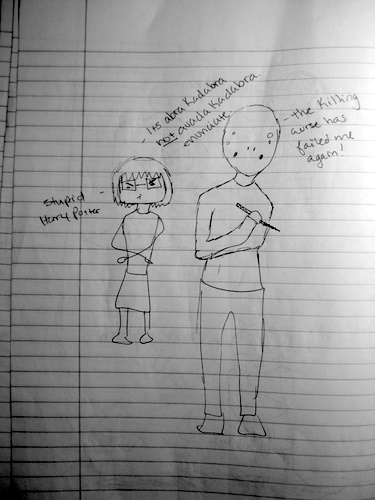 - Its abra Kadabra
not avada Kadabra.
enunciate
- the Killing
curse has
failed me
again!
stupid -
Harry Potter